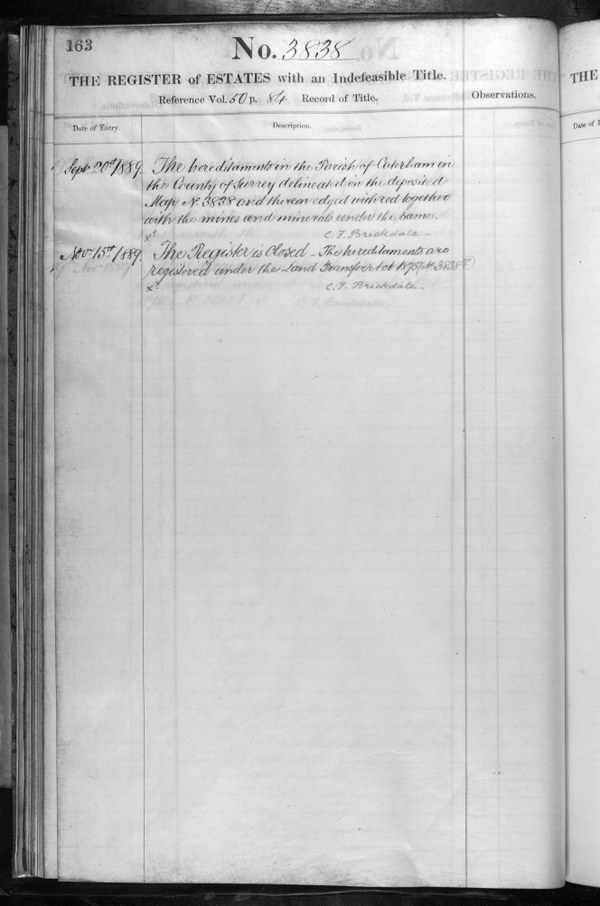 163
No. 3838
THE REGISTER of ESTATES with an Indefeasible Title.
Reference Vol. 50 p. 84 Record of Title.
Observations.
Date of Entry.
Description.
Sept 20th 1889. The hereditaments in the Parish of Caterham in
the County of Surrey delineated on the deposited
Map No 3838 and thereon edged with red together
with the mines and minerals under the same.
C. F. Brickdale –
Novr 15th 1889. The Register is Closed – The hereditaments are
registered under the Land Transfer Act 1875
C. F. Brickdale –
THE
Date of